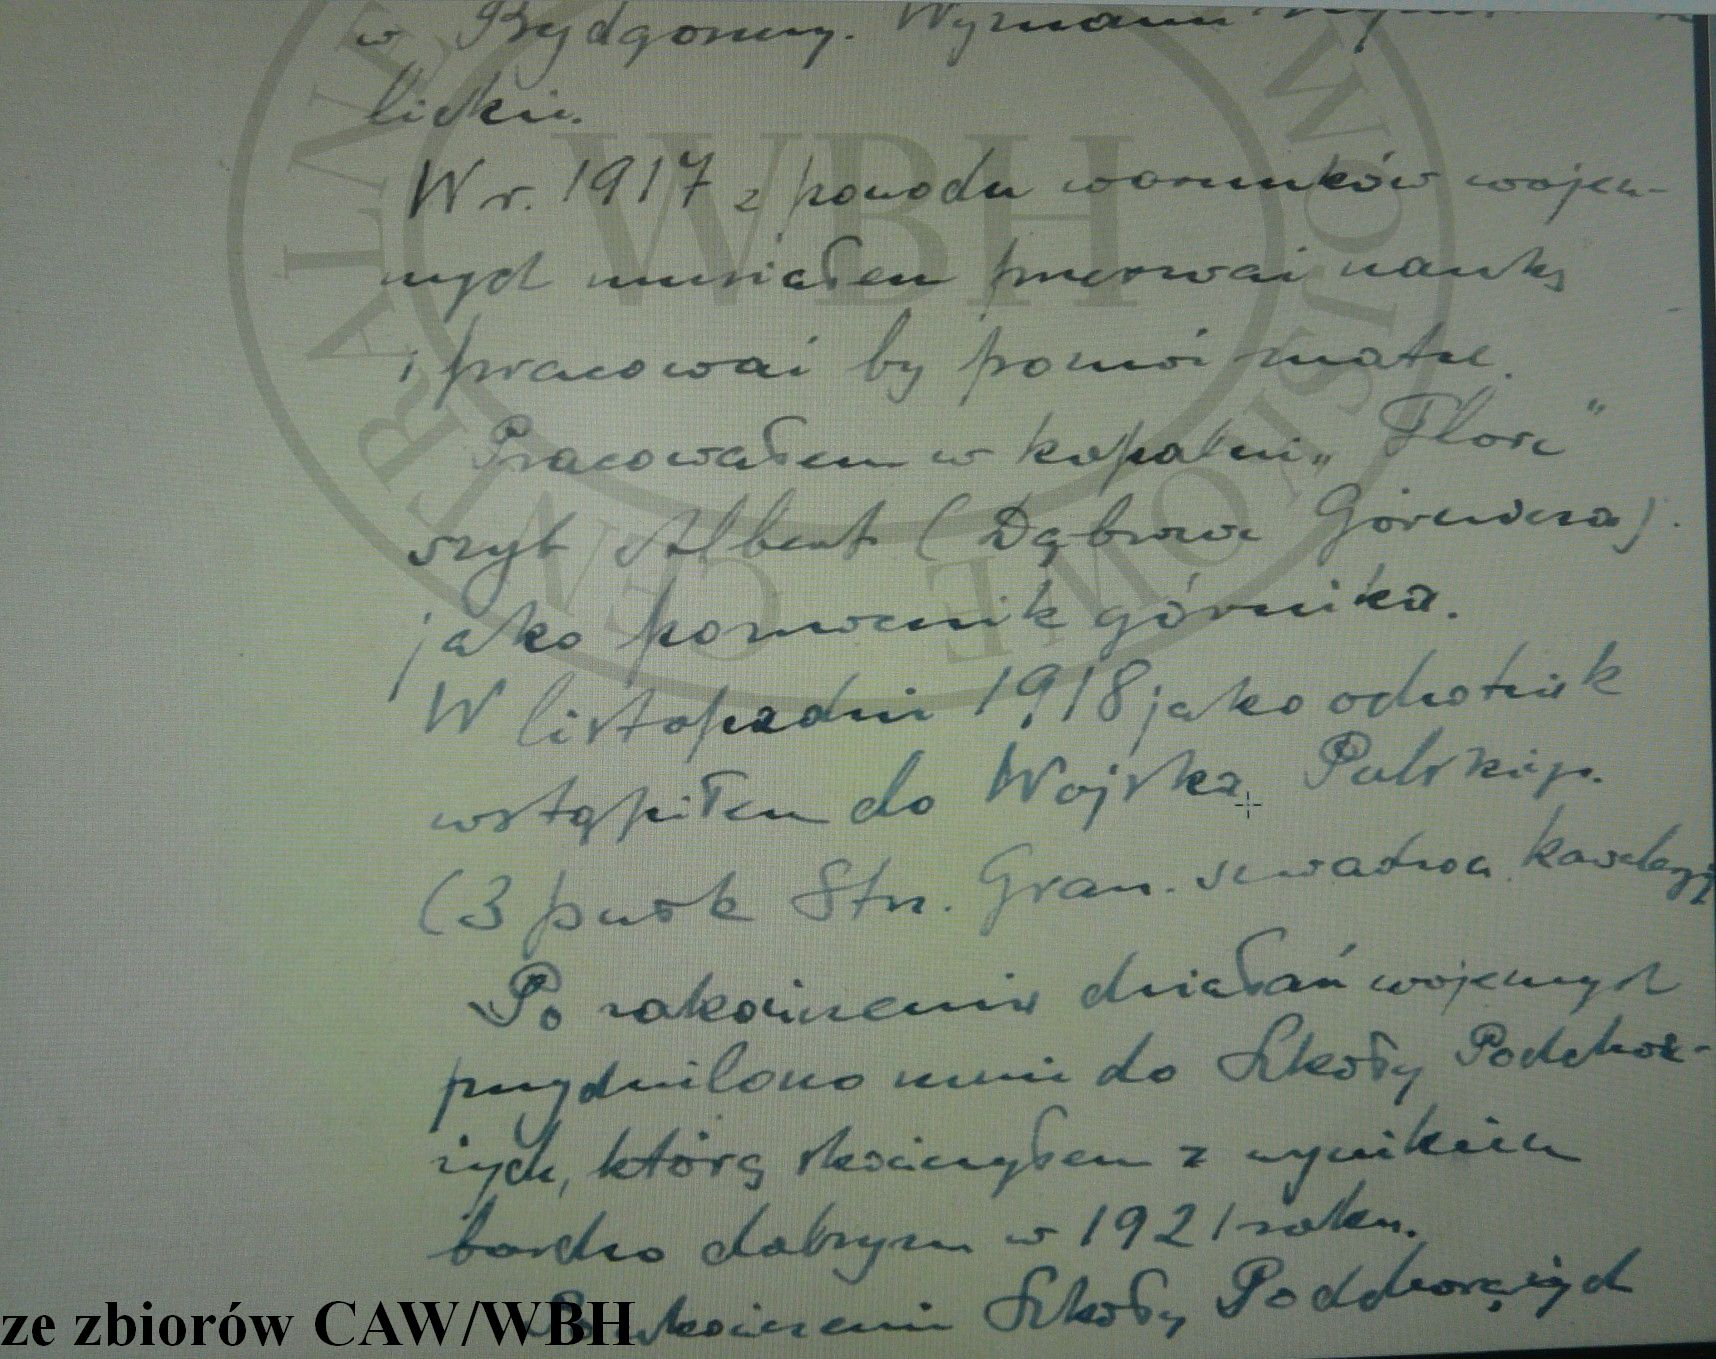 w Bydgoszczy. Wyznanie
lickie.
W r. 1917 z powodu warunków wojen-
nych musiałem przerwać naukę
i pracować by pomóc matce.
Pracowałem w kopalni „Flora"
szyb Albert (Dąbrowa Górnicza).
jako pomocnik górnika.
W listopadzie 1918 jako ochotnik
wstąpiłem do Wojska Polskiego.
(3 pułk Strz. Gran. szwadron kawalerji
Po zakończeniu działań wojennych
przydzielono mnie do Szkoły Podchorą-
żych, którą skończyłem z wynikiem
bardzo dobrym w 1921 roku.
Po ukończeniu Szkoły Podchorążych
ze zbiorów CAW/WBH
WBH
CENTRALNE
WOJSKOWE